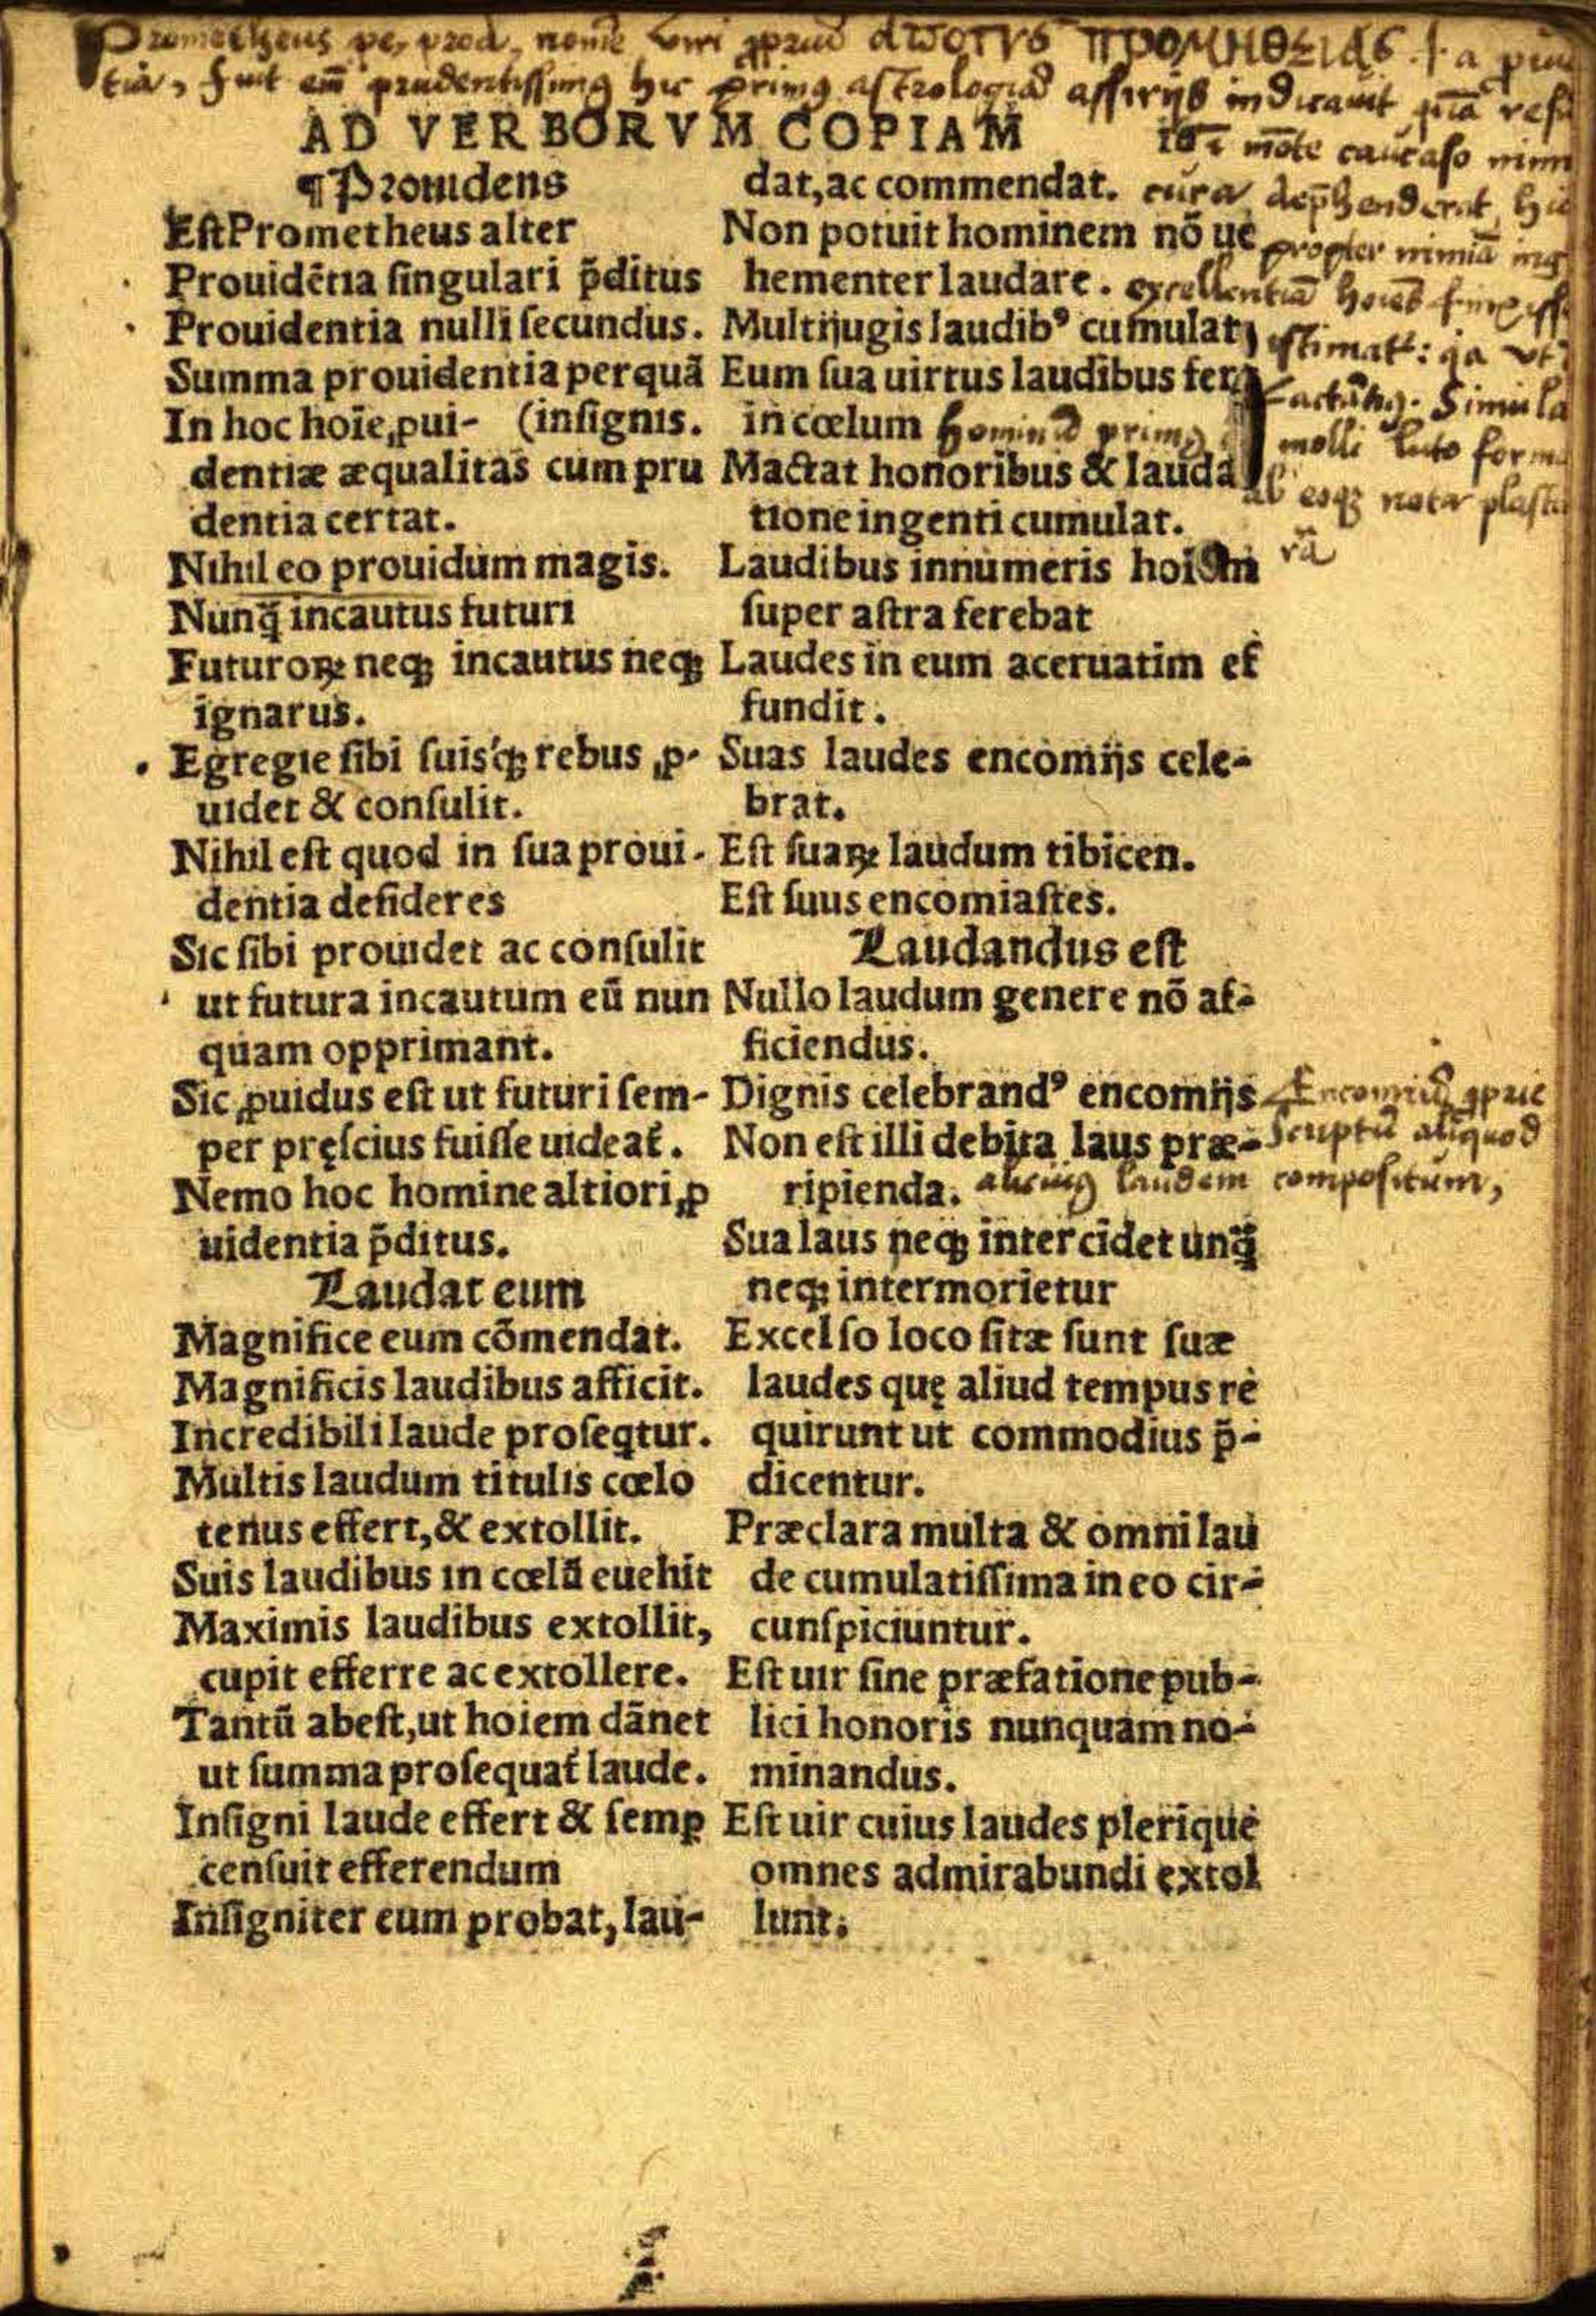 Prometheus
tia, fuit em̄ prudentissimꝯ hic primꝯ astrologiā assirijs indicauit quā
AD VERBORVM COPIAM
mōte caucaso
cura
propter nimiā
excellentiā
molli luto
¶Prouidens
Eſt Prometheus alter
Prouidẽtia ſingulari p̄ditus
Prouidentia nulli ſecundus.
Summa prouidentia perquã
In hoc hoīe ꝓui- (inſignis.
dentiæ æqualitas cum pru
dentia certat.
Nihil eo prouidum magis.
Nunq̃ incautus futuri
Futuroꝝ neqꝫ incautus neqꝫ
ignarus.
Egregie ſibi ſuisqꝫ rebus ꝓ-
uidet & conſulit.
Nihil eſt quod in ſua proui-
dentia deſideres
Sic ſibi prouidet ac conſulit
ut futura incautum eũ nun
quam opprimant.
Sic ꝓuidus eſt ut futuri ſem-
per pręſcius fuiſſe uideat̃.
Nemo hoc homine altiori ꝓ
uidentia p̄ditus.
Laudat eum
Magnifice eum cõmendat.
Magnificis laudibus afficit.
Incredibili laude proſeq̃tur.
Multis laudum titulis cœlo
tenus effert, & extollit.
Suis laudibus in cœlũ euehit
Maximis laudibus extollit,
cupit efferre ac extollere.
Tantũ abeſt, ut hoiem dãnet
ut ſumma proſequat̃ laude.
Inſigni laude effert & ſemꝑ
cenſuit efferendum
Inſigniter eum probat, lau-
dat, ac commendat.
Non potuit hominem nõ ue
hementer laudare.
Multijugis laudibꝰ cumulat
Eum ſua uirtus laudibus fert
in cœlum
Mactat honoribus & lauda
tione ingenti cumulat.
Laudibus innumeris
ſuper aſtra ferebat
Laudes in eum aceruatim ef
fundit.
Suas laudes encomijs cele-
brat.
Eſt ſuaꝝ laudum tibicen.
Eſt ſuus encomiaſtes.
Laudandus eſt
Nullo laudum genere nõ af-
ficiendus.
Dignis celebrandꝰ encomijs
Non eſt illi debita laus præ-
ripienda.
Sua laus neqꝫ intercidet unq̃
neqꝫ intermorietur
Excelſo loco ſitæ ſunt ſuæ
laudes quę aliud tempus re
quirunt ut commodius p̄-
dicentur.
Præclara multa & omni lau
de cumulatiſſima in eo cir-
cunſpiciuntur.
Eſt uir ſine præfatione pub-
lici honoris nunquam no-
minandus.
Eſt uir cuius laudes plerique
omnes admirabundi extol
lunt.
Encomiū ꝓprie
scriptū aliquod
alicuiꝯ laudem compositum,